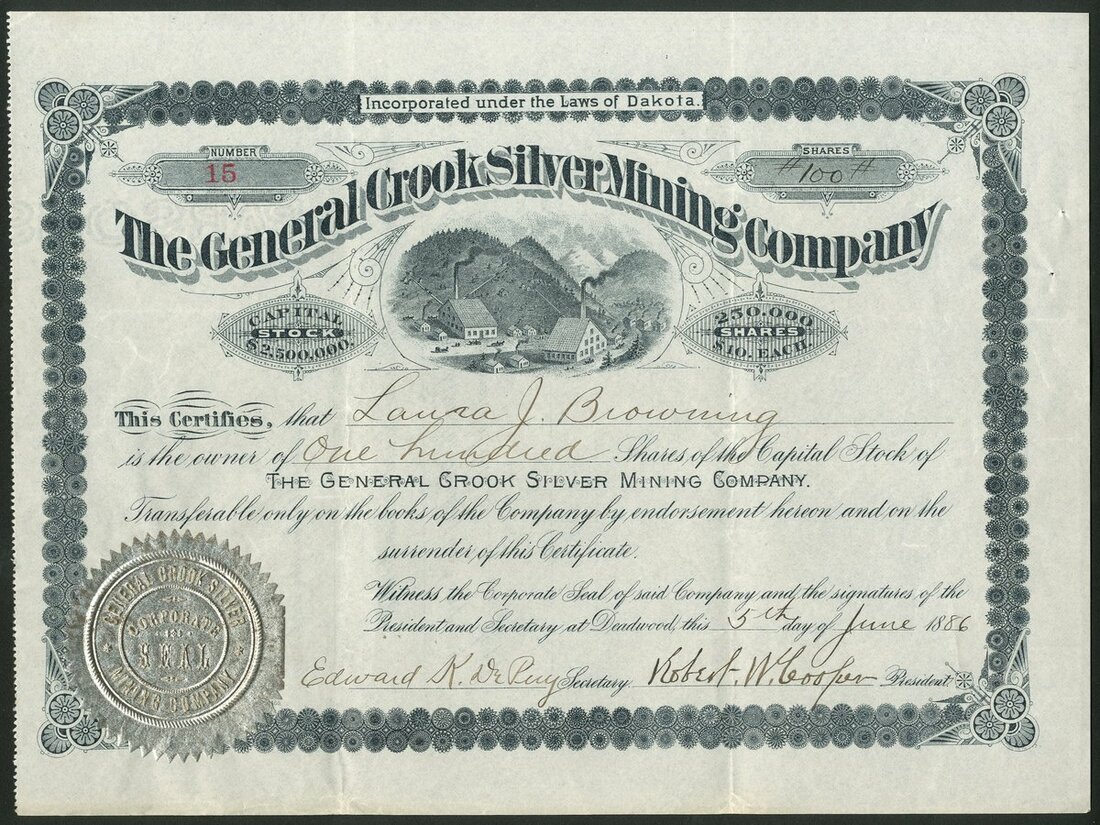 Incorporated under the Laws of Dakota.
NUMBER
15
SHARES
#100#
The General Crook Silver Mining Company
CAPITAL
STOCK
$2,500,000.
250,000
SHARES
$10. EACH.
This Certifies, that Laura J. Browning
is the owner of One hundred Shares of the Capital Stock of
THE GENERAL CROOK SILVER MINING COMPANY.
Transferable only on the books of the Company by endorsement hereon and on the
surrender of this Certificate.
Witness the Corporate Seal of said Company and the signatures of the
President and Secretary at Deadwood, this 5th day of June 1886
Edward K. De Puy Secretary. Robert W. Cooper President.
GENERAL CROOK SILVER
MINING COMPANY
CORPORATE
SEAL